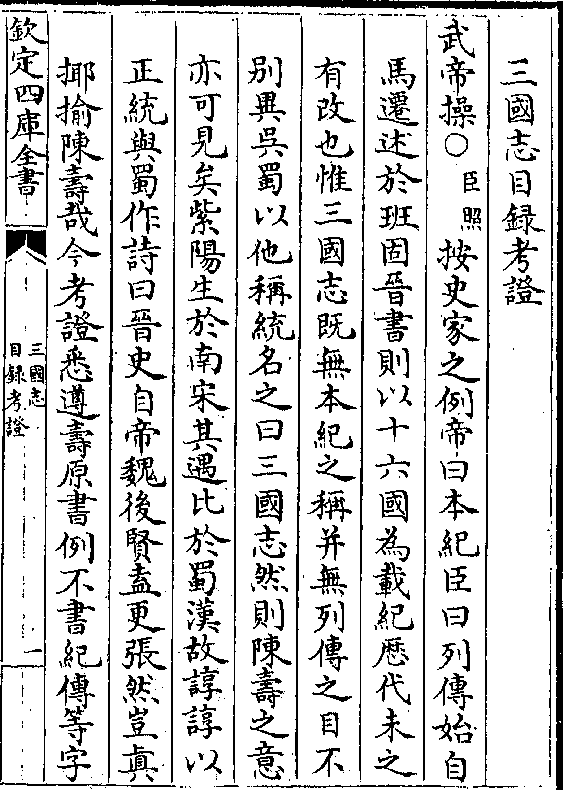 三國志目録考證
武帝操○臣照按史家之例帝曰本紀臣曰列傳始自
馬遷述於班固晉書則以十六國為載紀歴代未之
有改也惟三國志既無本紀之稱并無列傳之目不
别異吳蜀以他稱統名之曰三國志然則陳壽之意
亦可見矣紫陽生於南宋其遇比於蜀漢故諄諄以
正統與蜀作詩曰晉史自帝魏後賢盍更張然豈真
揶揄陳壽哉今考證悉遵壽原書例不書紀傳等字
欽定四庫全書
三國志
目録考證
一